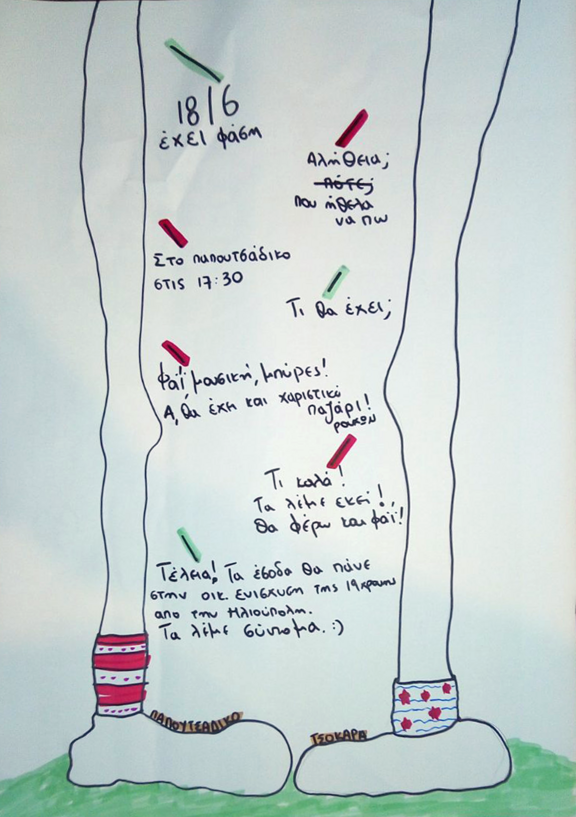 18/6
έχει φάση
Αλήθεια;
πότε;
που ήθελα
να πω
Στο παπουτσάδικο
στις 17:30
Τι θα έχει;
Φαΐ, μουσική, μπύρες!
Α, θα έχη και χαριστικό
παζάρι!
ρουχων
Τι καλά!
Τα λέμε εκεί!
Θα φέρω και φαΐ!
Τέλεια! Τα έσοδα θα πάνε
στην οικ. ενίσχυση της 19χρονης
απο την Ηλιούπολη.
Τα λέμε σύντομα. :)
ΠΑΠΟΥΤΣΑΔΙΚΟ
ΤΣΟΚΑΡΑ